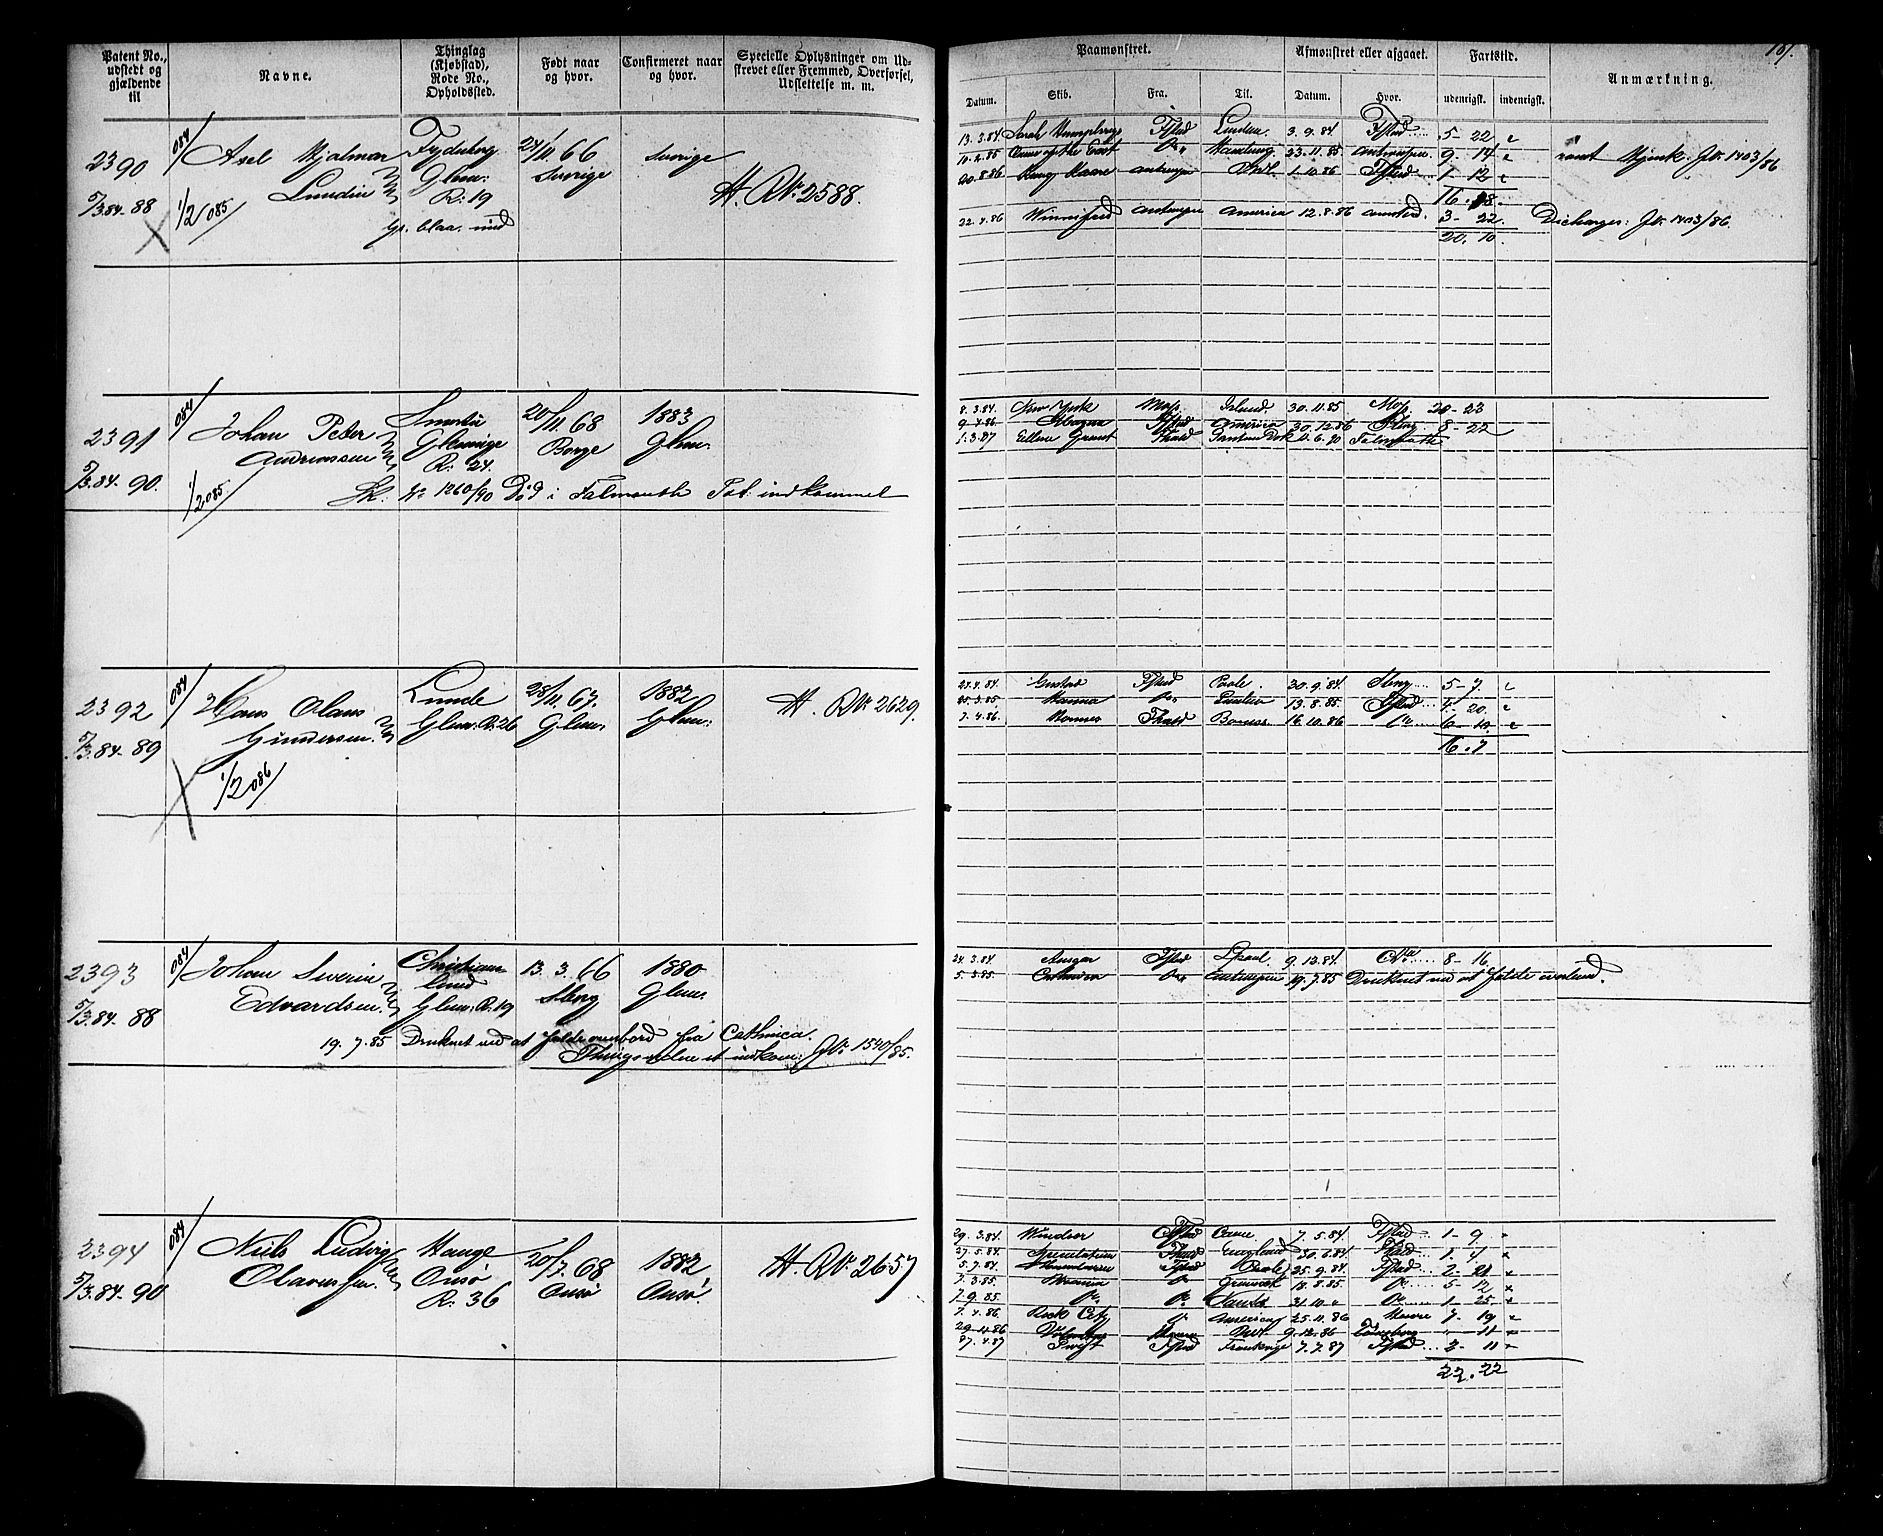 187.
Patent No., udstedt og gjældende til
Navne.
Thinglag (Kjøbstad), Rode No., Opholdssted.
Født naar og hvor.
Confirmeret naar og hvor.
Specielle Oplysninger om Udstrevet eller Fremmed, Overførsel, Udslettelse m. m.
Paamønstret.
Afmønstret eller afgaaet.
Fartstid.
Anmærkning.
Datum. Skib. Fra. Til. Datum. Hvor. udenrigst. indenrigst.
2390
5/3.84-88
084
Axel Hjalmar
Lundin
1/2 085
Glem:
R: 19
gr. blaa. mid
24/11 66
Sverige
Sverige
H. R.Nr 2588.
13.3.84 Sarah Humphrey Fstad London. 3.9.84 Fstad 5- 22 "
10.2.85 Hamburg 23.11.85 Antwerpen 9- 14 "
20.8.86 Antwerpen 1.10.86 Fstad 1- 12 "
16.18.
22.1.86 Winnifred Antwerpen America 12.8.86 3- 22.
20. 10.
Hjemk. J.Nr 1403/86
Discharges: J.Nr. 1403/86.
2391
5/3.84-90.
084
Johan Peter
Andreassen
1/2 085
Glemminge
R: 24.
20/11 68
Borge
1883
Glem.
No 1260/90 Død i Falmouth Pat. indkommet
8.3.84. New York Moss Island. 30.11.85 Moss 20- 23
Fstad America 30.12.86 Sbrg 8- 22
1.3.87 Ellen Grant Fhald 11.6.90 Falmouth
2392
5/3.84-89
084
Hans Olaus
Gundersen
1/2 086
Lunde
Glem. R. 26
28/11. 67.
Glem.
1882
Glem:
H. R.Nr 2629.
Gustav Fstad Poole. 30.9.84. Sbrg 5- 7. "
25.3.85. Hanna Do. London 13.8.85 Fstad 4- 20. "
7.4.86. Hanna Fhald 16.10.86 Do 6- 10. "
16.7
2393
5/3.84-88
084
Johan Severin
Edvardsen
Christians
lund
Glem. R. 19
13. 3. 66
Sbrg
1880
Glem.
19. 7. 85 Druknet ved at falde overbord fra Cathinca.
indkom. J.Nr 1540/85.
24.3.84 Ansgar Fstad 9.12.84. 8- 16.
5.3.85. Cathinca Do Antwerpen 19.7.85 Druknet ved at falde overbord.
2394
5/3.84-90
084
Niels Ludvig
Olavessen.
Hauge
Onsø
R: 36
20/7. 68
Onsø
1882
Onsø.
H. R.Nr 2657
29.3.84. Windsor Fstad 7.5.84. Fstad 1- 9 "
27.5.84. Speculation Fstad England 30.6.84. Fstad 1- 4 "
5.7.84. Fstad Poole 25.9.84. Fstad 2- 21 "
7.3.85. Do 18.8.85. Do 5- 12 "
7.9.85 Do Do 31.10. " Do 1- 25. "
7.4.86 Rock City Do 25.11.86 7- 19 "
29.11.86 9.12.86 "- 11 "
27.4.87 Swift Fstad Frankrige 7.7.87 Fstad 2- 11 "
22. 22